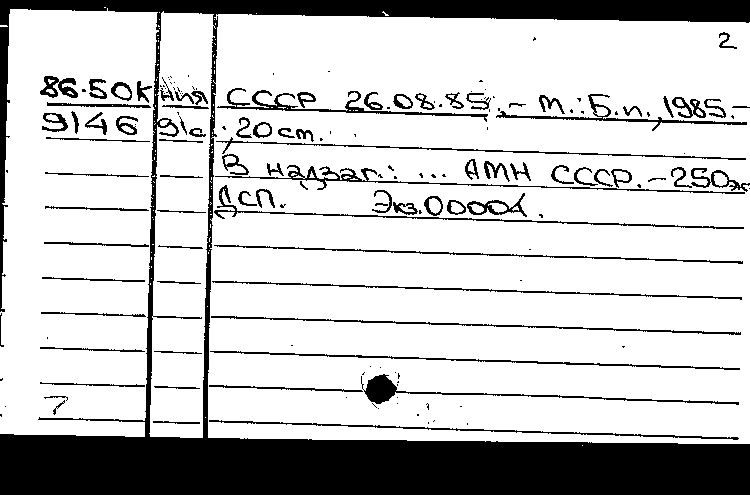 2
86.50К ния СССР 26.08.85.- М.:Б.и.,1985.-
9146 91с.;20см.
В надзаг.: ... АМН СССР.-250эк
ДСП. Экз.00001.